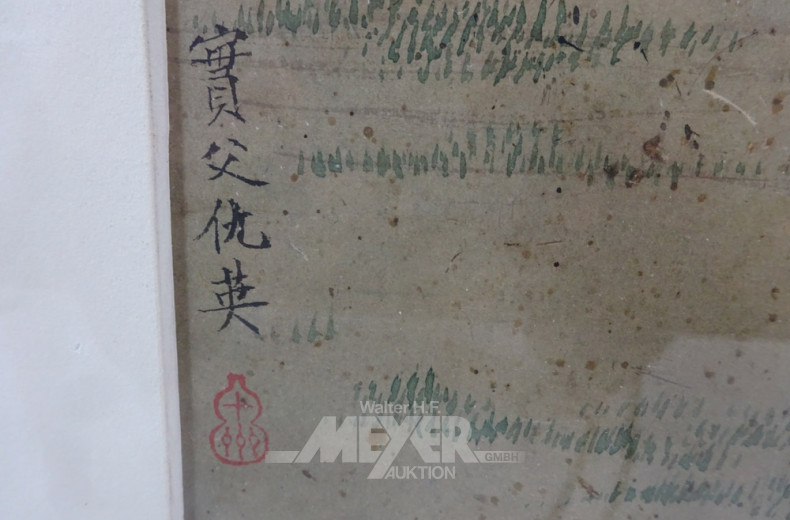 實父仇英
十州
Walter H.F.
MEYER
GMBH
AUKTION